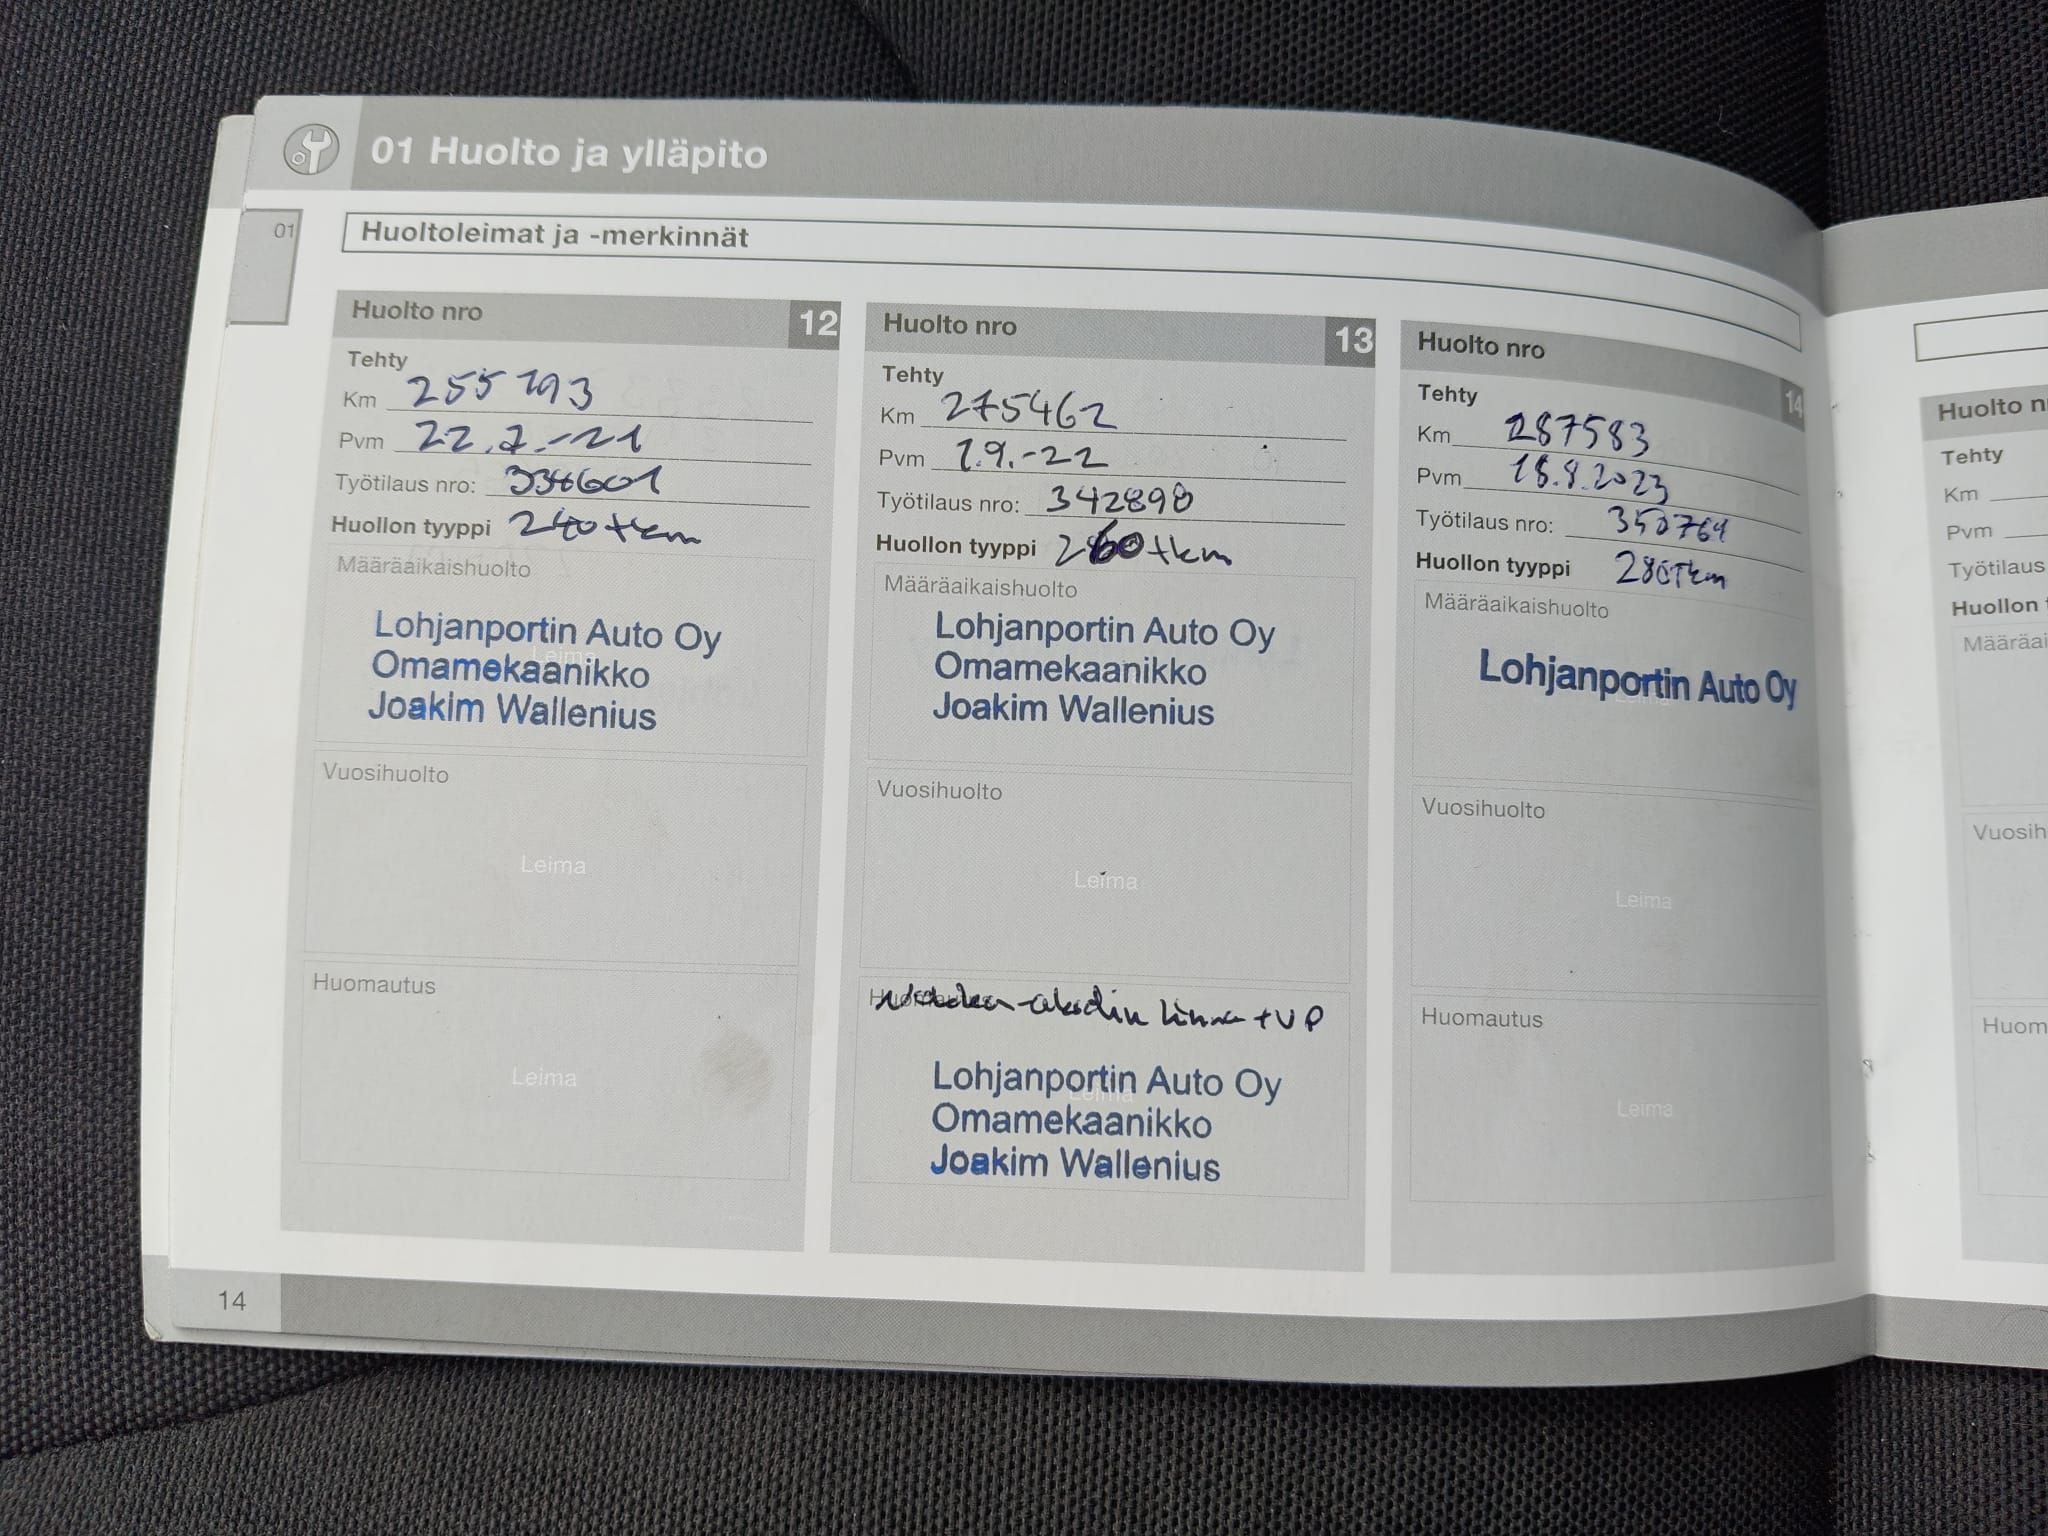 01 Huolto ja ylläpito
01
Huoltoleimat ja -merkinnät
Huolto nro 12
Tehty
Km 255 793
Pvm 22.7.-21
Työtilaus nro: 334601
Huollon tyyppi 240 tkm
Määräaikaishuolto
Leima
Lohjanportin Auto Oy
Omamekaanikko
Joakim Wallenius
Vuosihuolto
Leima
Huomautus
Leima
Huolto nro 13
Tehty
Km 275462
Pvm 1.9.-22
Työtilaus nro: 342890
Huollon tyyppi 260 tkm
Määräaikaishuolto
Lohjanportin Auto Oy
Omamekaanikko
Joakim Wallenius
Vuosihuolto
Leima
Huomautus
hihna + VP
Leima
Lohjanportin Auto Oy
Omamekaanikko
Joakim Wallenius
Huolto nro 14
Tehty
Km 287583
Pvm 18.8.2023
Työtilaus nro: 350764
Huollon tyyppi 280Tkm
Määräaikaishuolto
Leima
Lohjanportin Auto Oy
Vuosihuolto
Leima
Huomautus
Leima
Huolto
Tehty
Km
Pvm
Työtilaus
Huollon
14